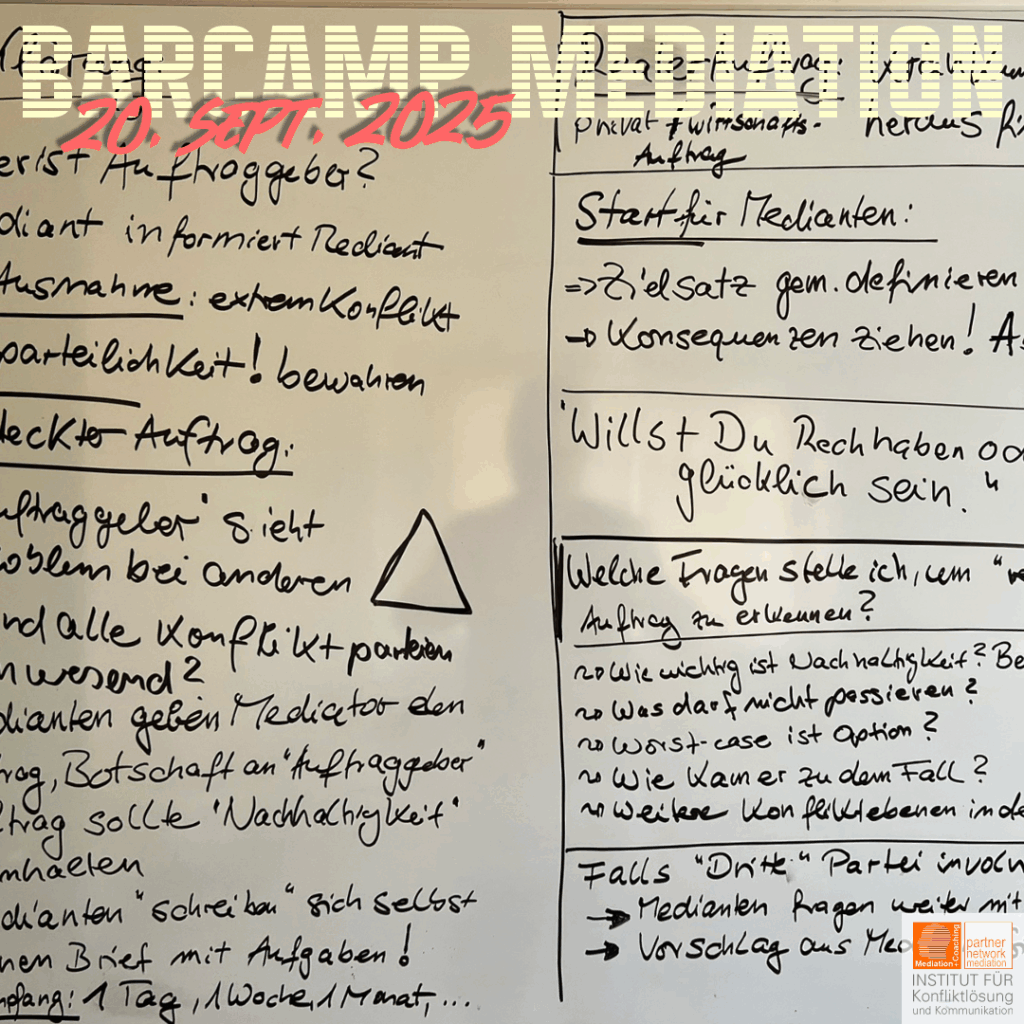 BARCAMP MEDIATION
20. SEPT. 2025
er ist Auftraggeber?
diant informiert Mediant
Ausnahme: extrem Konflikt
parteilichkeit! bewahren
deckter Auftrag:
uftraggeber" sieht
roblem bei anderen
nd alle Konfliktparteien
nwesend?
dianten geben Mediator den
rag, Botschaft an "Auftraggeber"
trag sollte "Nachhaltigkeit"
nhalten
dianten "schreiben" sich selbst
nen Brief mit Aufgaben!
mpfang: 1 Tag, 1 Woche, 1 Monat, ...
privat + wirtschafts- heraus
Auftrag
Start für Medianten:
=> Zielsatz gem. definieren
→ Konsequenzen ziehen!
"Willst Du Rech haben od
glücklich sein."
Welche Fragen stelle ich, um
Auftrag zu erkennen?
~> Wie wichtig ist Nachhaltigkeit? Be
~> Was darf nicht passieren?
~> Worst-case ist Option?
~> Wie kam er zu dem Fall?
~> Weitere Konfliktebenen in de
Falls "Dritte" Partei involv
→ Medianten fragen weiter mit
→ Vorschlag aus Med
Mediation + Coaching
partner
network
mediation
INSTITUT FÜR
Konfliktlösung
und Kommunikation